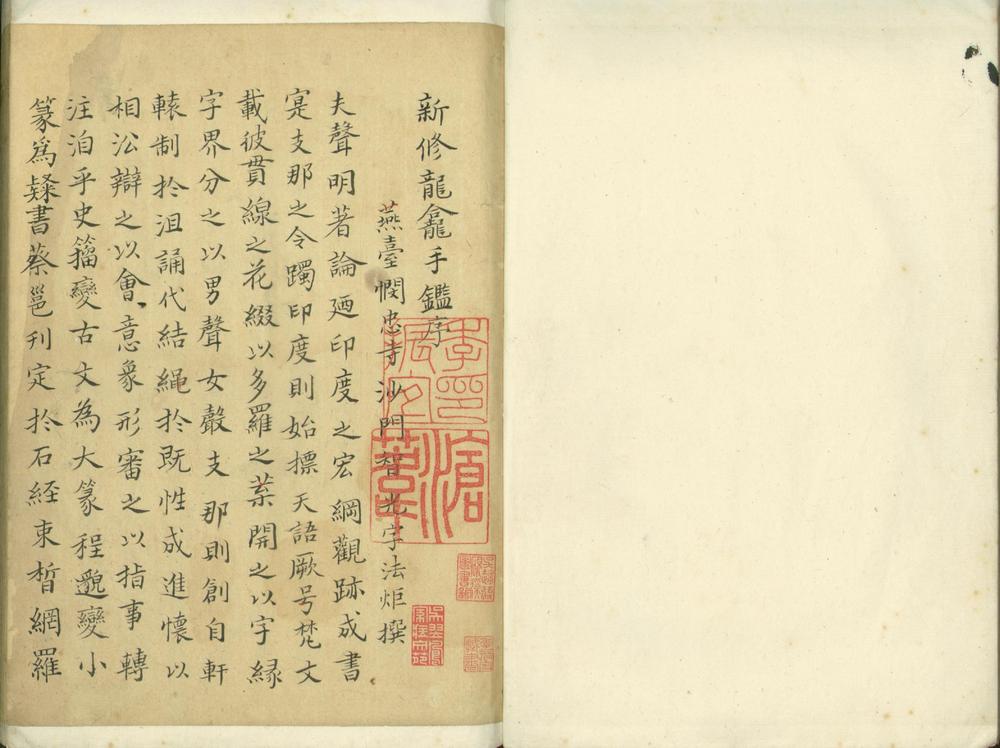 新修龍龕手鑑序
燕臺憫忠寺沙門智光字法炬撰
夫聲明著論廼印度之宏綱觀跡成書
寔支那之令躅印度則始摽天語厥号梵文
載彼貫線之花綴以多羅之葉開之以字緣
字界分之以男聲女聲支那則創自軒
轅制扵沮誦代結繩扵既性成進懷以
相沿辯之以會意象形審之以指事轉
注洎乎史籀變古文為大篆程邈變小
篆爲隸書蔡邕刊定扵石経束晳網羅